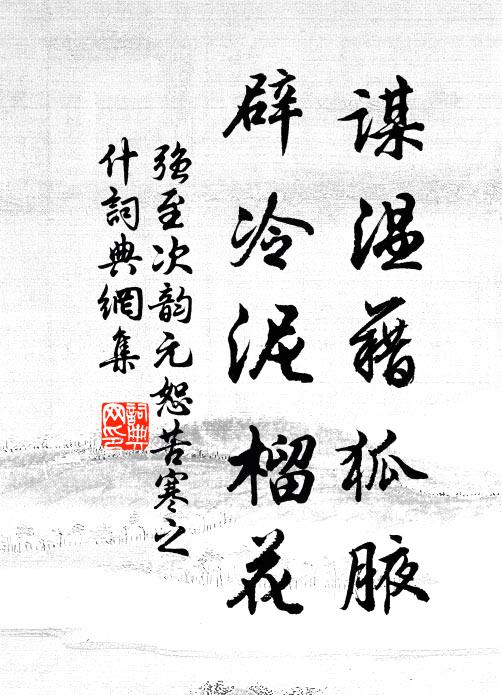 謀温藉狐腋
辟冷泥榴花
強至次韵元恕苦寒之
什詞典網集
詞典網印